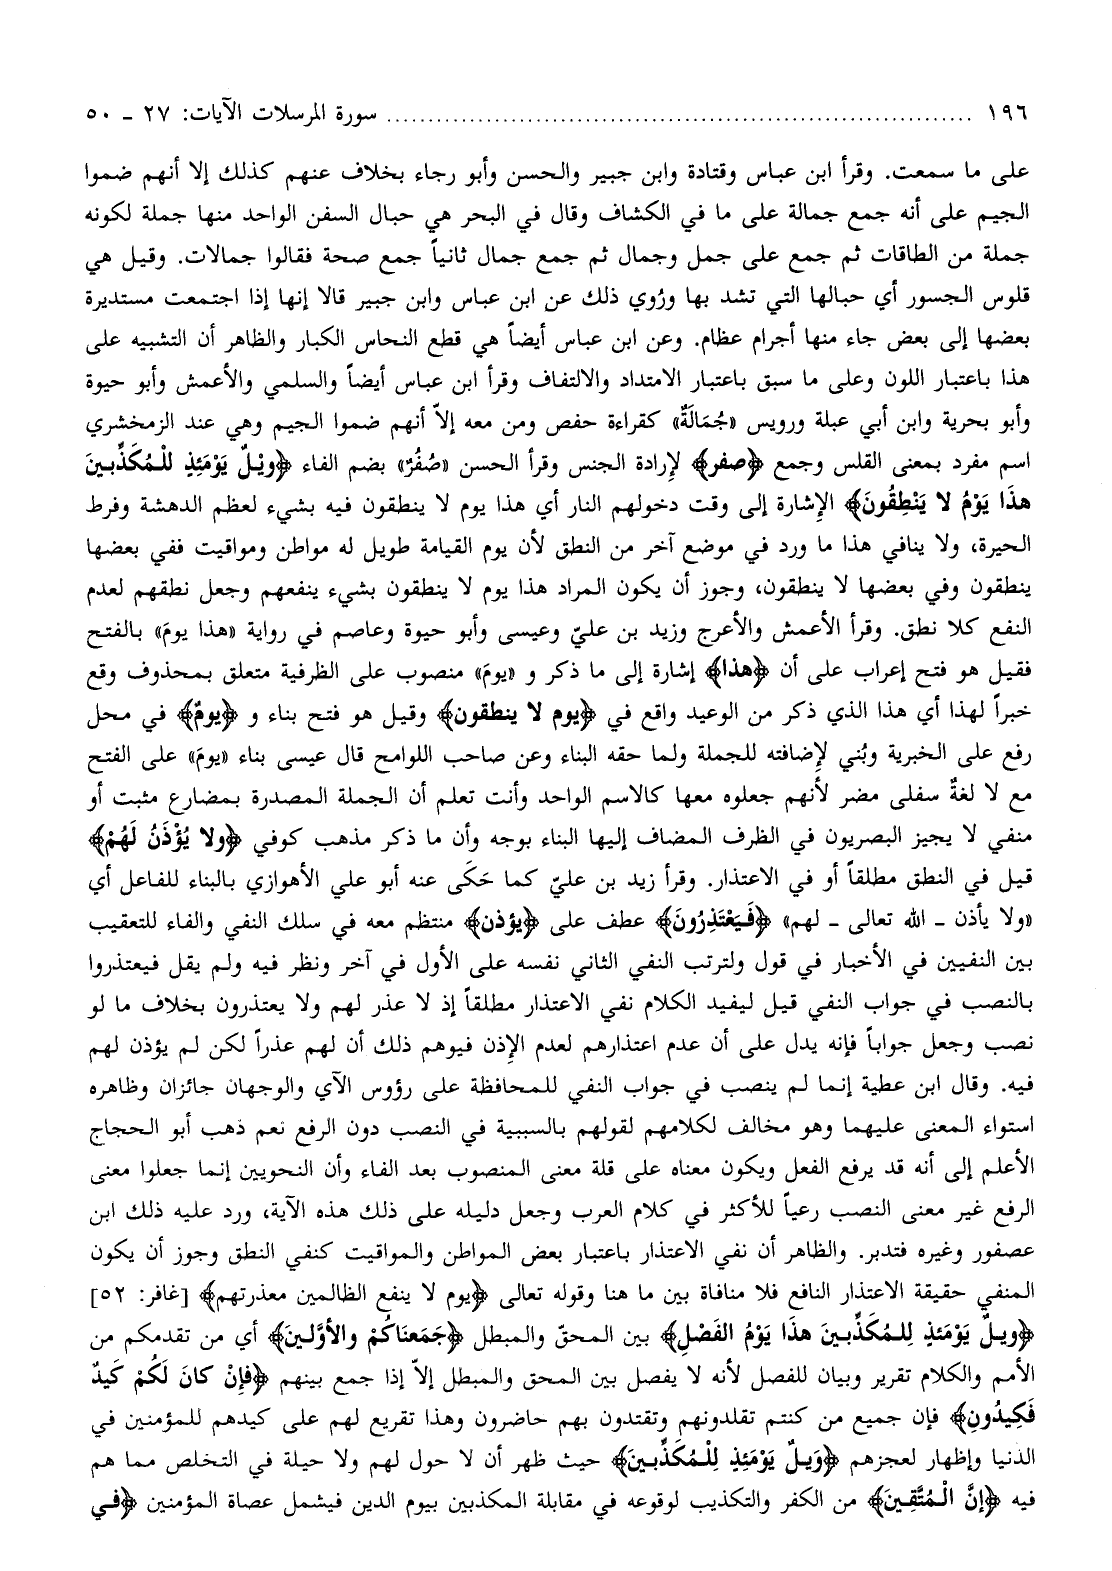 ١٩٦ ........................................................................ سورة المرسلات الآيات: ٢٧ ـ ٥٠
على ما سمعت. وقرأ ابن عباس وقتادة وابن جبير والحسن وأبو رجاء بخلاف عنهم كذلك إلا أنهم ضموا
الجيم على أنه جمع جمالة على ما في الكشاف وقال في البحر هي حبال السفن الواحد منها جملة لكونه
جملة من الطاقات ثم جمع على جمل وجمال ثم جمع جمال ثانياً جمع صحة فقالوا جمالات. وقيل هي
قلوس الجسور أي حبالها التي تشد بها ورُوي ذلك عن ابن عباس وابن جبير قالا إنها إذا اجتمعت مستديرة
بعضها إلى بعض جاء منها أجرام عظام. وعن ابن عباس أيضاً هي قطع النحاس الكبار والظاهر أن التشبيه على
هذا باعتبار اللون وعلى ما سبق باعتبار الامتداد والالتفاف وقرأ ابن عباس أيضاً والسلمي والأعمش وأبو حيوة
وأبو بحرية وابن أبي عبلة ورويس «جُمَالَةٌ» كقراءة حفص ومن معه إلاّ أنهم ضموا الجيم وهي عند الزمخشري
اسم مفرد بمعنى القلس وجمع ﴿صفر﴾ لإرادة الجنس وقرأ الحسن «صُفُرٌ» بضم الفاء ﴿ويْلٌ يَوْمَئِذٍ للْمُكَذِّبـينَ
هذَا يَوْمُ لا يَنْطِقُونَ﴾ الإشارة إلى وقت دخولهم النار أي هذا يوم لا ينطقون فيه بشيء لعظم الدهشة وفرط
الحيرة، ولا ينافي هذا ما ورد في موضع آخر من النطق لأن يوم القيامة طويل له مواطن ومواقيت ففي بعضها
ينطقون وفي بعضها لا ينطقون، وجوز أن يكون المراد هذا يوم لا ينطقون بشيء ينفعهم وجعل نطقهم لعدم
النفع كلا نطق. وقرأ الأعمش والأعرج وزيد بن عليّ وعيسى وأبو حيوة وعاصم في رواية «هذا يومَ» بالفتح
فقيل هو فتح إعراب على أن ﴿هذا﴾ إشارة إلى ما ذكر و «يومَ» منصوب على الظرفية متعلق بمحذوف وقع
خبراً لهذا أي هذا الذي ذكر من الوعيد واقع في ﴿يوم لا ينطقون﴾ وقيل هو فتح بناء و ﴿يومٌ﴾ في محل
رفع على الخبرية وبُني لإضافته للجملة ولما حقه البناء وعن صاحب اللوامح قال عيسى بناء «يومَ» على الفتح
مع لا لغةُ سفلى مضر لأنهم جعلوه معها كالاسم الواحد وأنت تعلم أن الجملة المصدرة بمضارع مثبت أو
منفي لا يجيز البصريون في الظرف المضاف إليها البناء بوجه وأن ما ذكر مذهب كوفي ﴿ولا يُؤْذَنُ لَهُمْ﴾
قيل في النطق مطلقاً أو في الاعتذار. وقرأ زيد بن عليّ كما حَكَى عنه أبو علي الأهوازي بالبناء للفاعل أي
«ولا يأذن ـ الله تعالى ـ لهم» ﴿فَـيَعْتَذِرُونَ﴾ عطف على ﴿يؤذن﴾ منتظم معه في سلك النفي والفاء للتعقيب
بين النفيين في الأخبار في قول ولترتب النفي الثاني نفسه على الأول في آخر ونظر فيه ولم يقل فيعتذروا
بالنصب في جواب النفي قيل ليفيد الكلام نفي الاعتذار مطلقاً إذ لا عذر لهم ولا يعتذرون بخلاف ما لو
نصب وجعل جواباً فإنه يدل على أن عدم اعتذارهم لعدم الإذن فيوهم ذلك أن لهم عذراً لكن لم يؤذن لهم
فيه. وقال ابن عطية إنما لم ينصب في جواب النفي للمحافظة على رؤوس الآي والوجهان جائزان وظاهره
استواء المعنى عليهما وهو مخالف لكلامهم لقولهم بالسببية في النصب دون الرفع نعم ذهب أبو الحجاج
الأعلم إلى أنه قد يرفع الفعل ويكون معناه على قلة معنى المنصوب بعد الفاء وأن النحويين إنما جعلوا معنى
الرفع غير معنى النصب رعياً للأكثر في كلام العرب وجعل دليله على ذلك هذه الآية، ورد عليه ذلك ابن
عصفور وغيره فتدبر. والظاهر أن نفي الاعتذار باعتبار بعض المواطن والمواقيت كنفي النطق وجوز أن يكون
المنفي حقيقة الاعتذار النافع فلا منافاة بين ما هنا وقوله تعالى ﴿يوم لا ينفع الظالمين معذرتهم﴾ [غافر: ٥٢]
﴿ويـلٌ يَوْمَئِذٍ لِلـمُكَذِّبـينَ هذَا يَوْمُ الفَصْلِ﴾ بين المحقّ والمبطل ﴿جَمَعنَاكُمْ والأوَّلـينَ﴾ أي من تقدمكم من
الأمم والكلام تقرير وبيان للفصل لأنه لا يفصل بين المحق والمبطل إلاّ إذا جمع بينهم ﴿فإِنْ كانَ لَكُمْ كَيدٌ
فَكِيدُونِ﴾ فإن جميع من كنتم تقلدونهم وتقتدون بهم حاضرون وهذا تقريع لهم على كيدهم للمؤمنين في
الدنيا وإظهار لعجزهم ﴿وَيـلٌ يَوْمَئِذٍ لِلْـمُكَذِّبـينَ﴾ حيث ظهر أن لا حول لهم ولا حيلة في التخلص مما هم
فيه ﴿إنَّ الْـمُتَّقِـينَ﴾ من الكفر والتكذيب لوقوعه في مقابلة المكذبين بيوم الدين فيشمل عصاة المؤمنين ﴿فـي